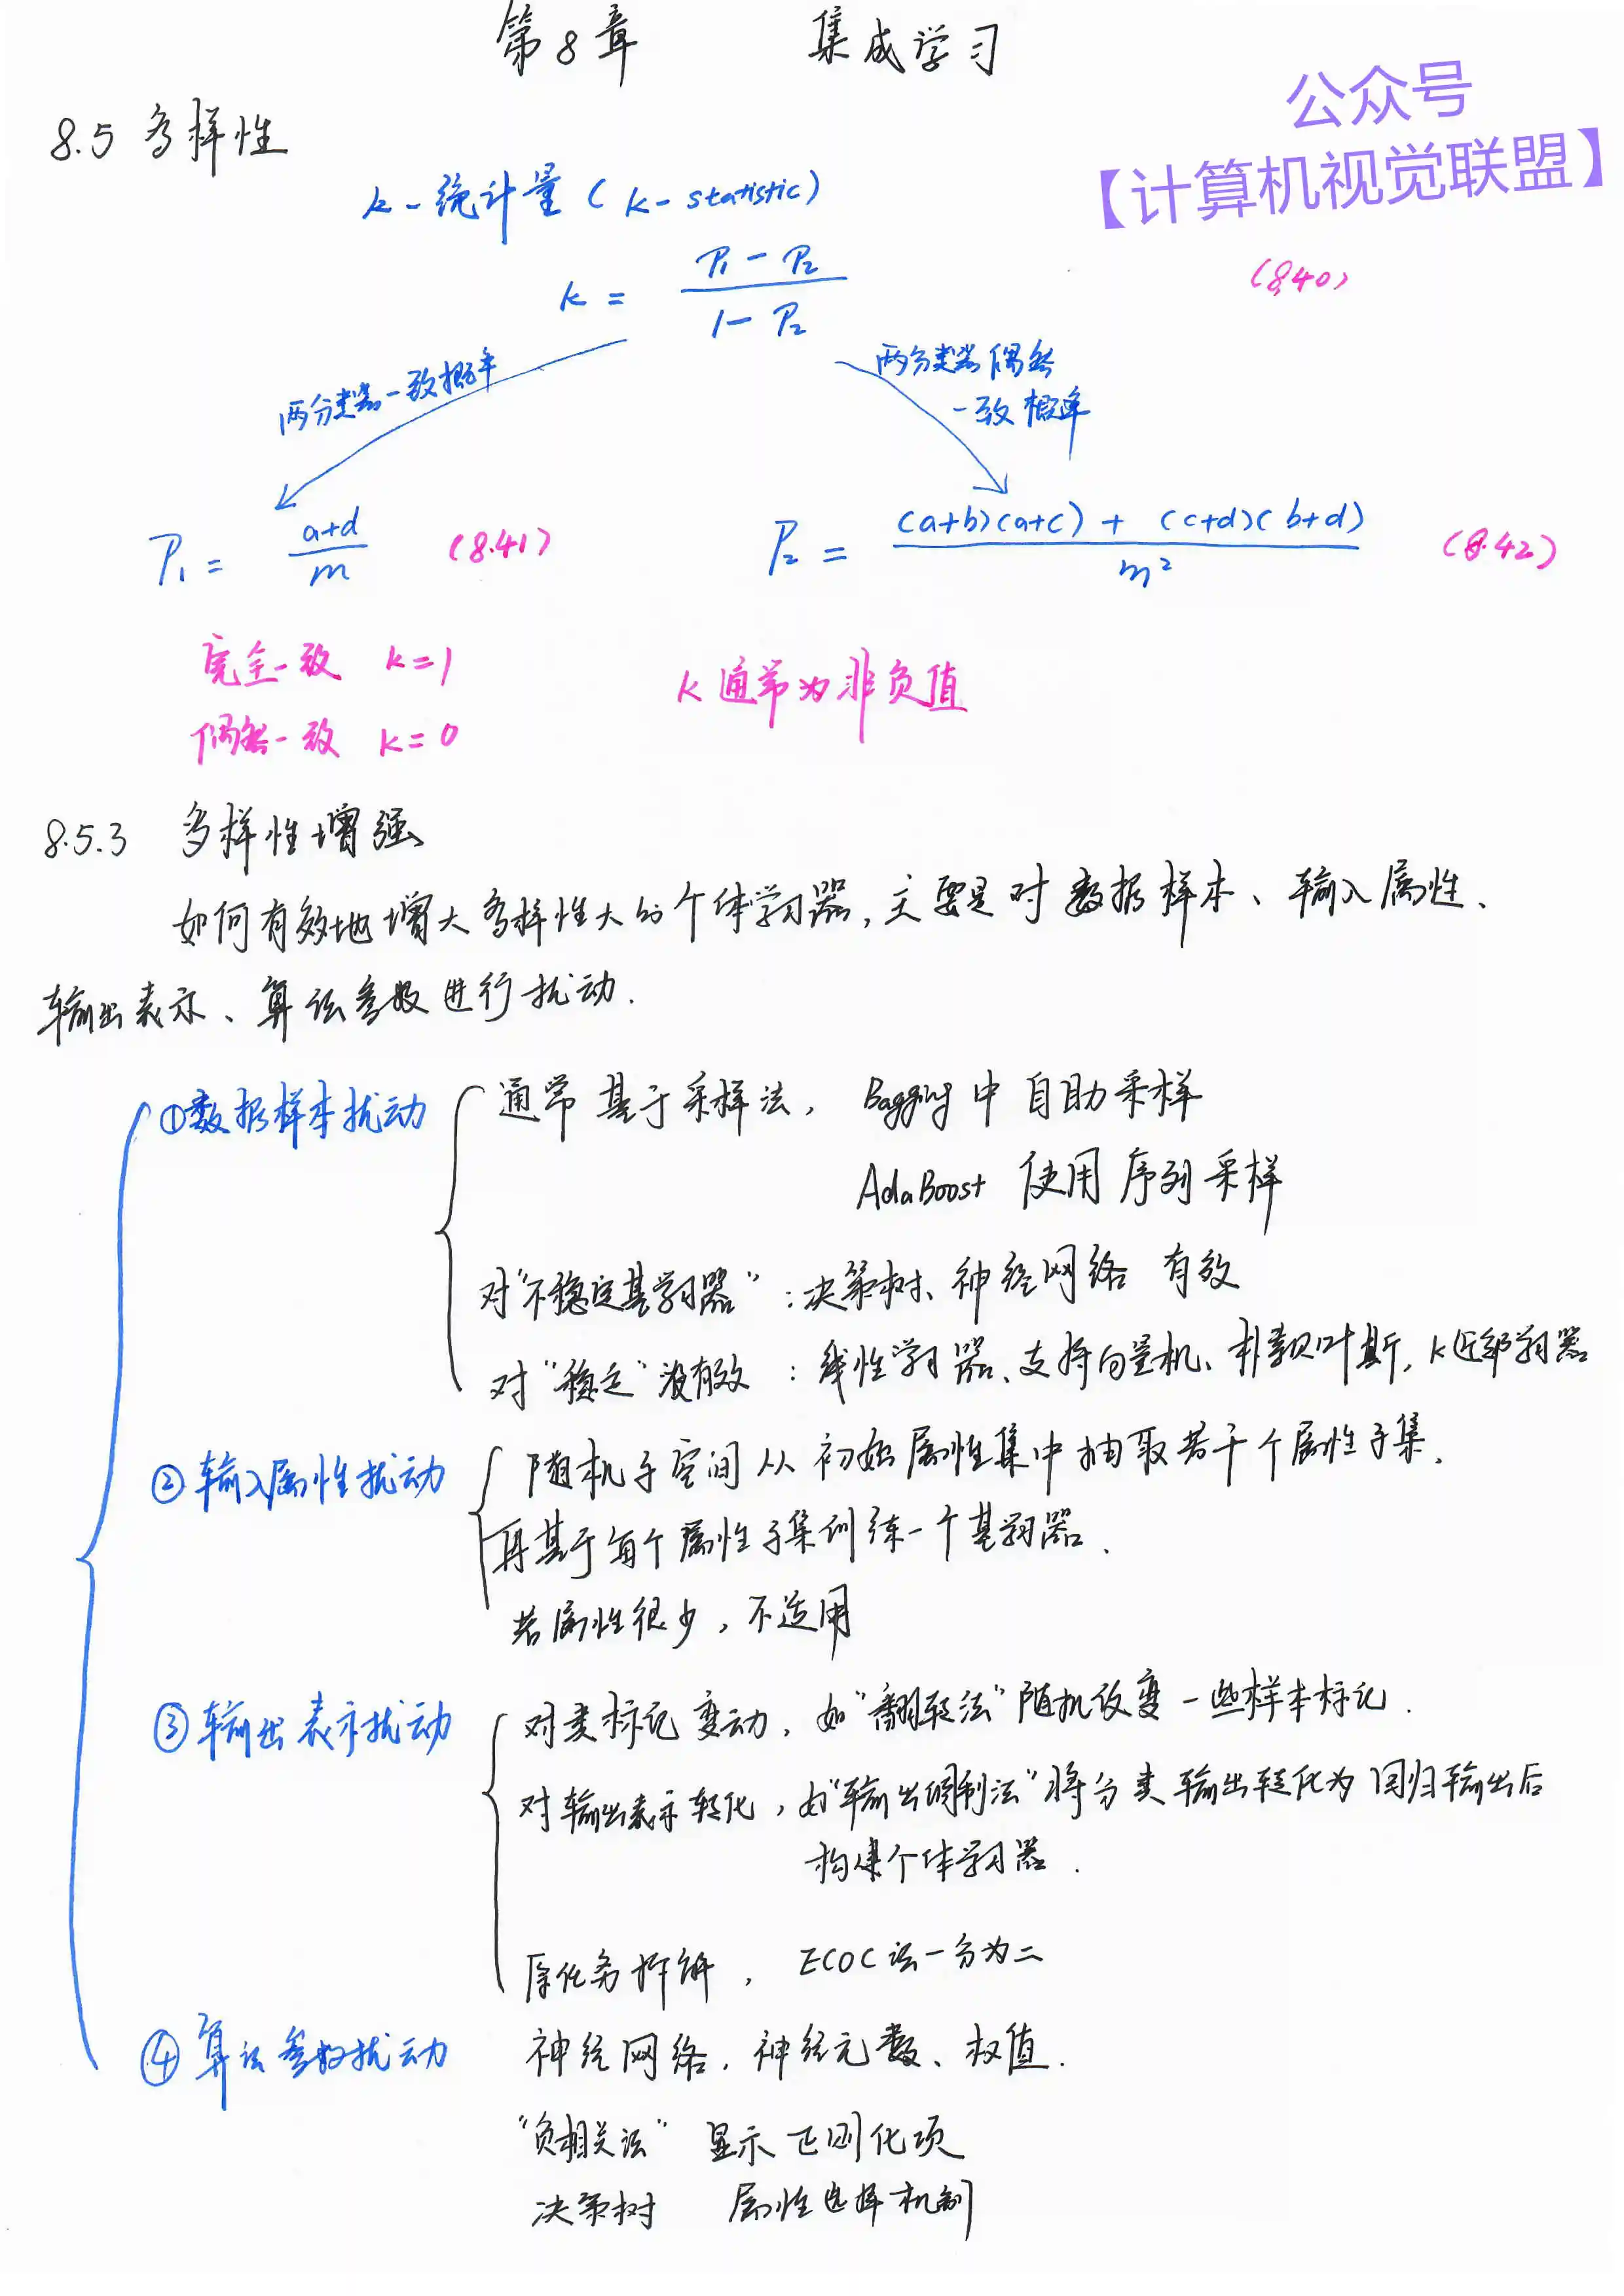 第8章 集成学习
公众号
【计算机视觉联盟】
8.5 多样性
k-统计量（k-statistic）
k = (P₁ - P₂) / (1 - P₂) (8.40)
两分类器一致概率
两分类器偶然
一致概率
P₁ = (a+d) / m (8.41)
P₂ = ((a+b)(a+c) + (c+d)(b+d)) / m² (8.42)
完全一致 k=1
k通常为非负值
偶然一致 k=0
8.5.3 多样性增强
如何有效地增大多样性大的个体学习器，主要是对数据样本、输入属性、
输出表示、算法参数进行扰动.
①数据样本扰动
通常基于采样法， Bagging中自助采样
AdaBoost 使用序列采样
对“不稳定基学习器”：决策树、神经网络 有效
对“稳定”没有效：线性学习器、支持向量机、朴素贝叶斯，k近邻学习器
②输入属性扰动
随机子空间从初始属性集中抽取若干个属性子集.
再基于每个属性子集训练一个基学习器、
若属性很少，不适用
③输出表示扰动
对类标记变动，如“翻转法”随机改变一些样本标记.
对输出表示转化，如“输出调制法”将分类输出转化为回归输出后
构建个体学习器.
原任务拆解， ECOC法一分为二
④算法参数扰动
神经网络，神经元数、权值.
“负相关法” 显示正则化项
决策树 属性选择机制